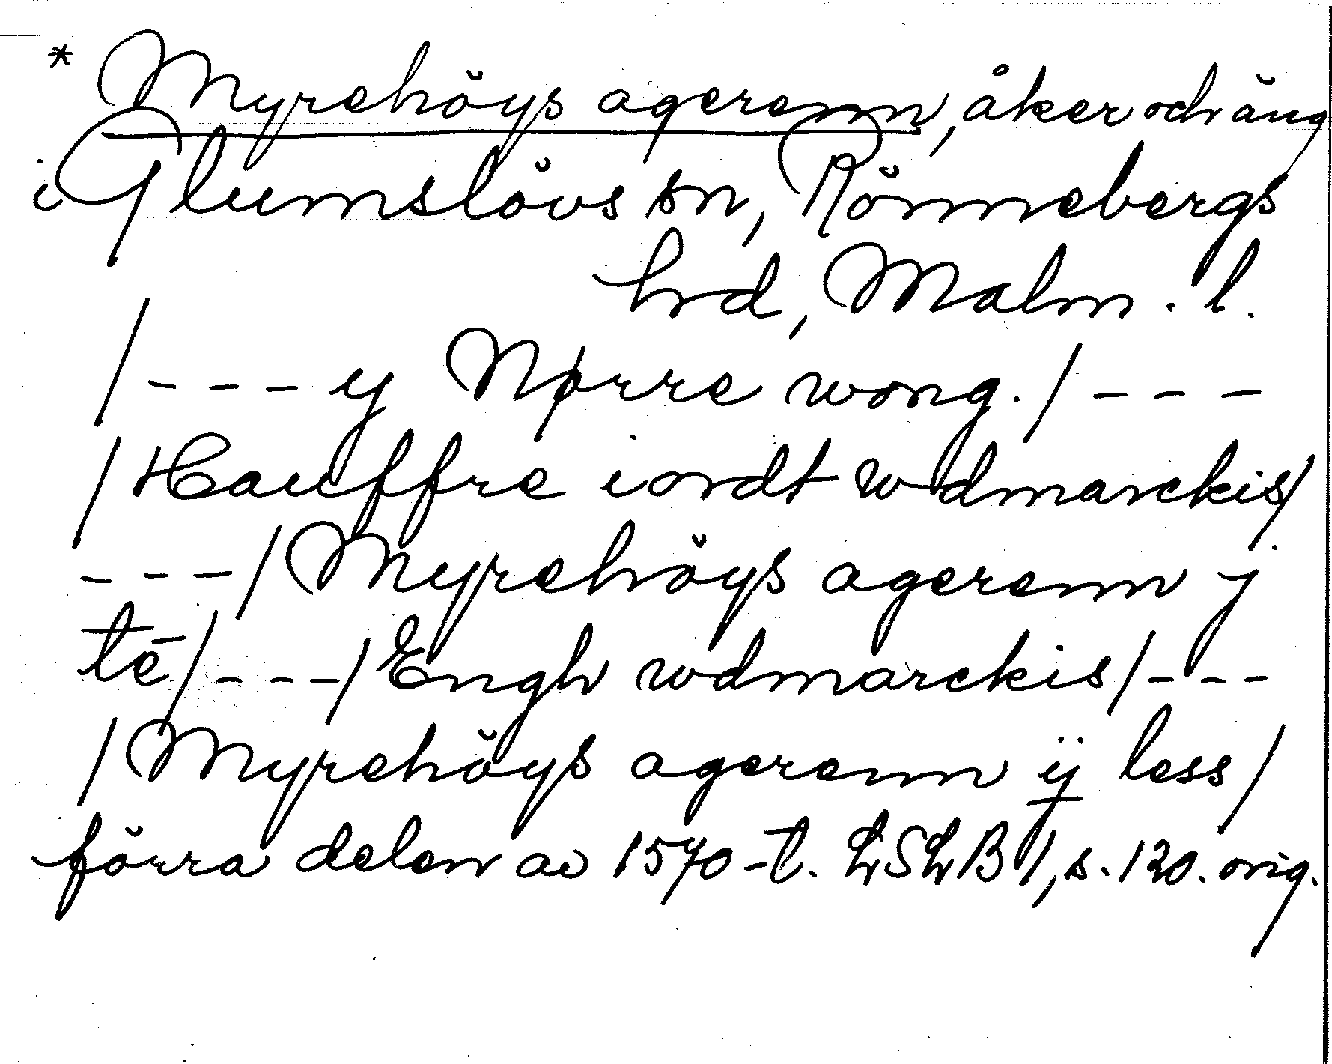 * Myrehöys agerenn, åker och äng
i Glumslövs sn, Rönnebergs
hrd, Malm. l.
/--- y Nørre wong./---
/Hauffre iordt wdmarckis/
---/Myrehöys agerenn j
tē/---/Engh wdmarckis/---
/Myrehöys agerenn ij less/
förra delen av 1570-t. LSLB I, s. 120. orig.